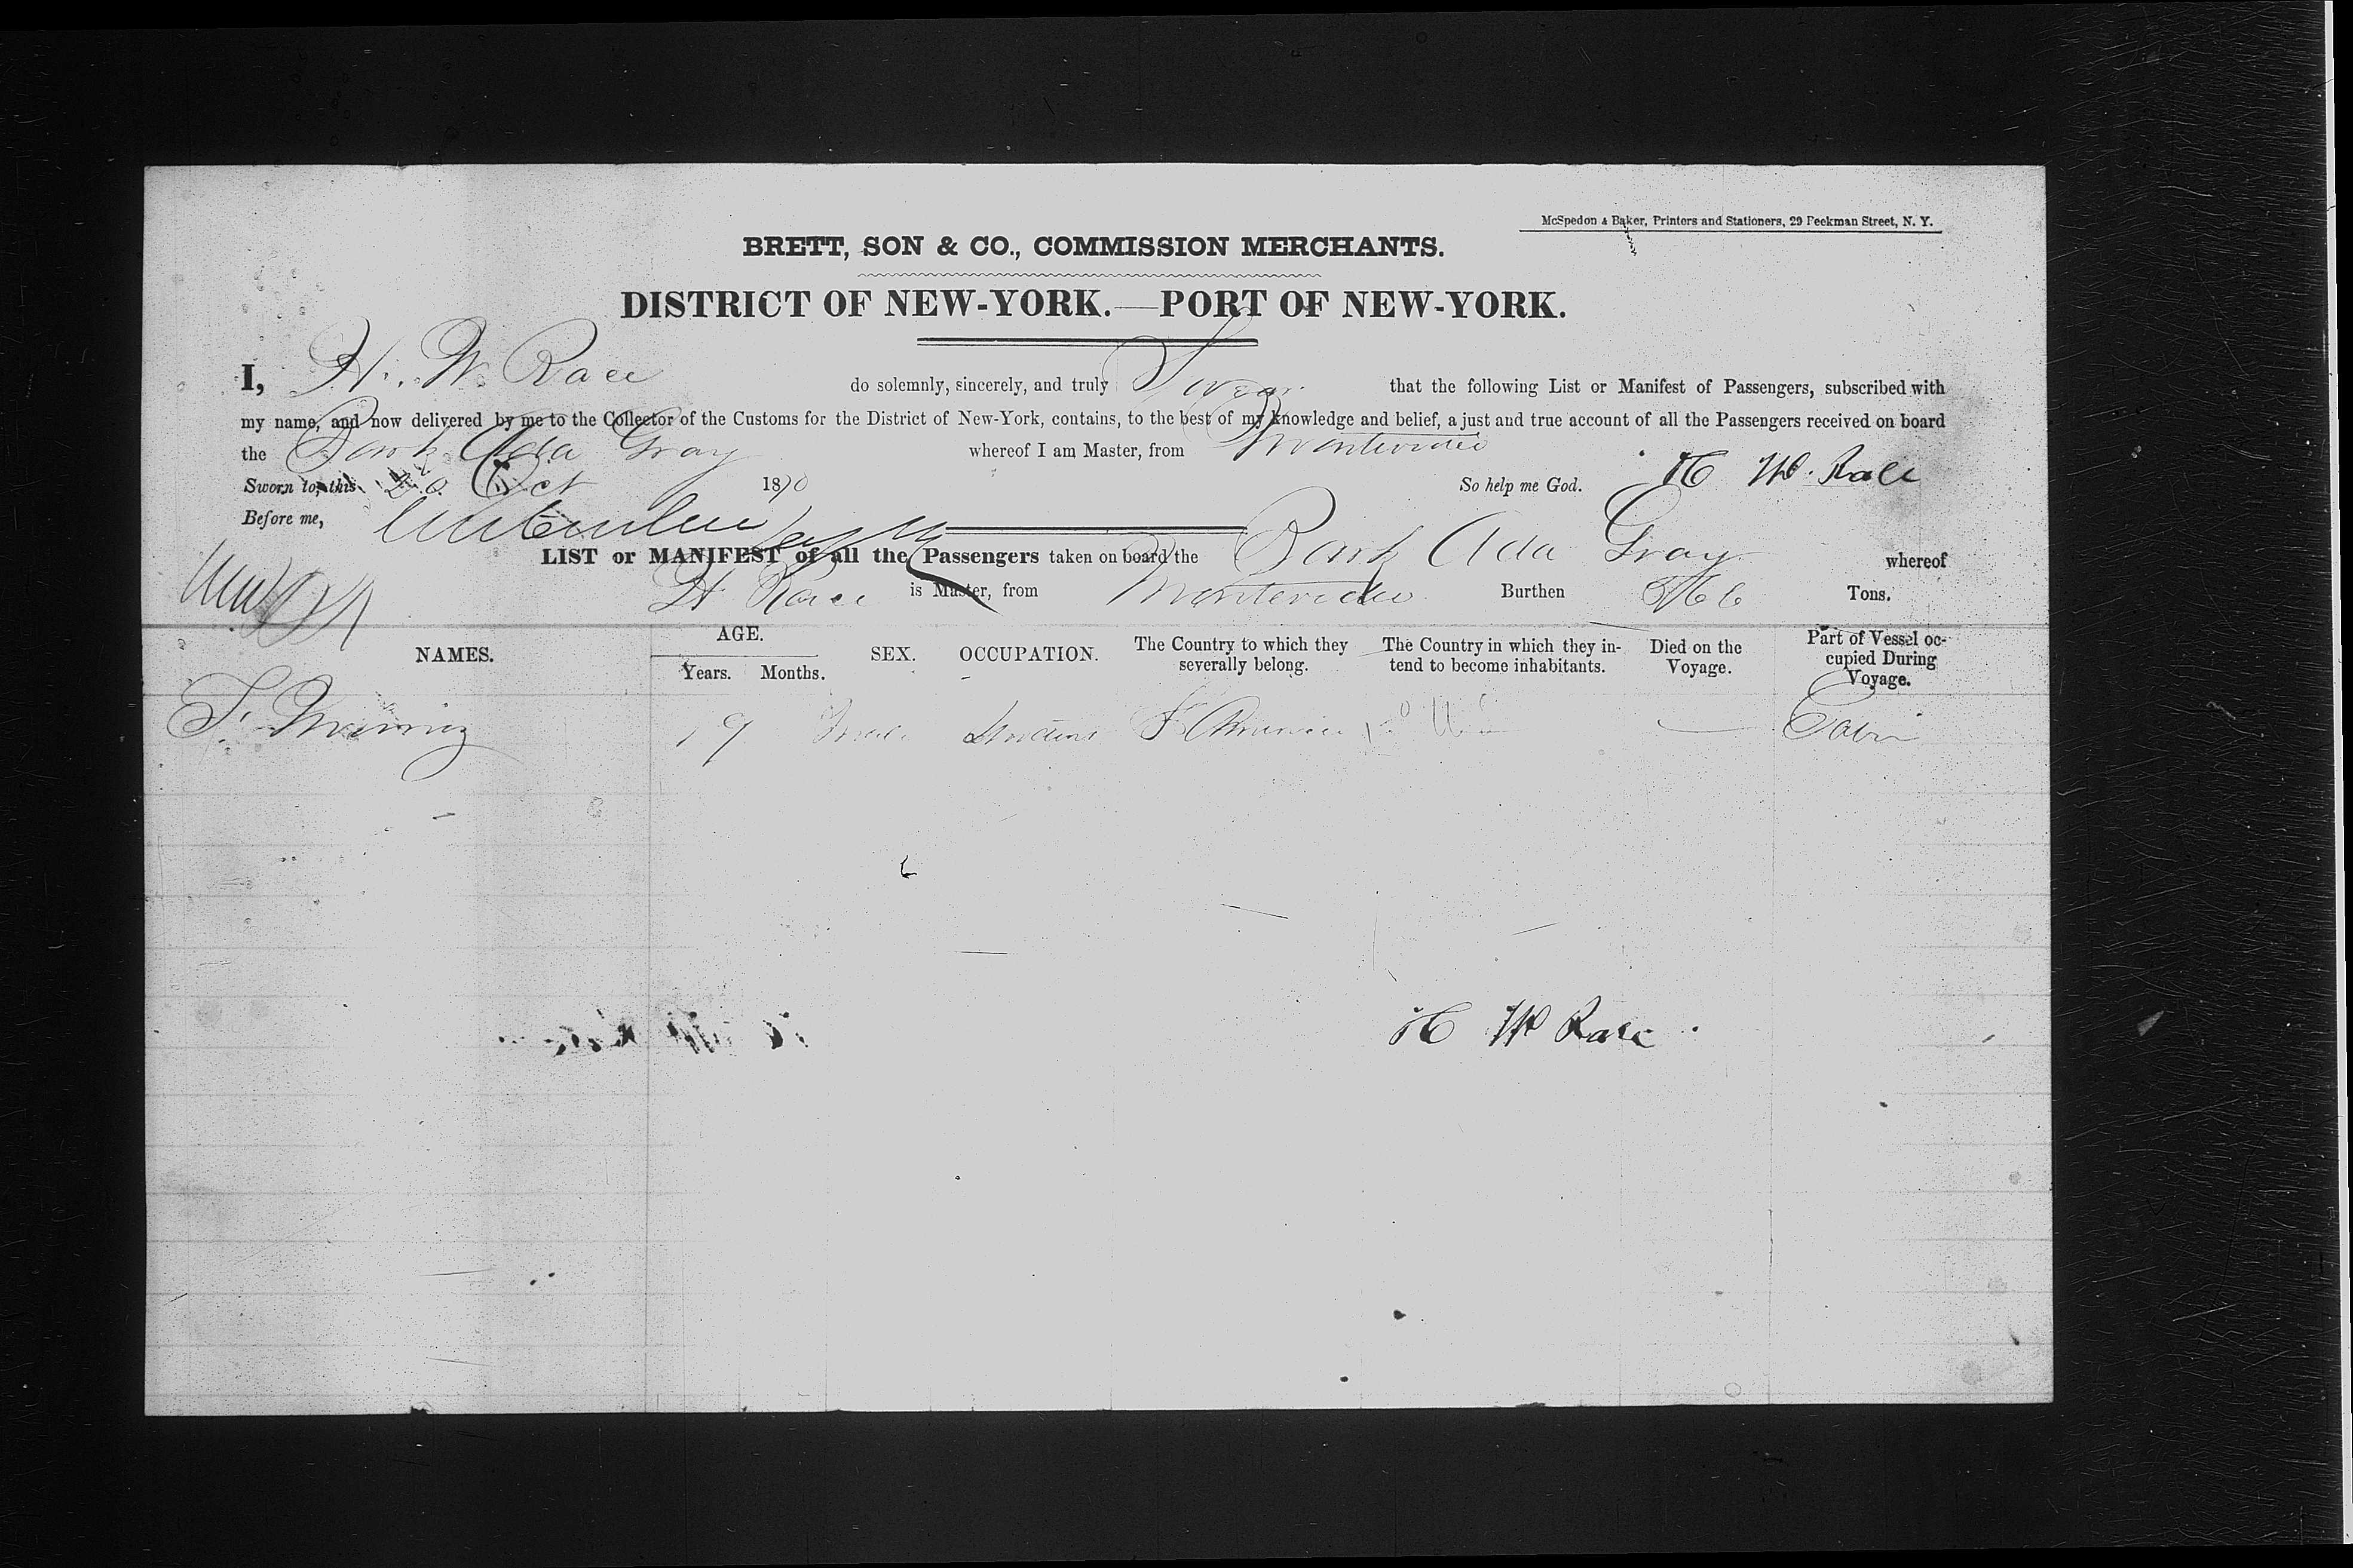 McSpedon & Baker, Printers and Stationers, 29 Beekman Street, N. Y.
BRETT, SON & CO., COMMISSION MERCHANTS.
DISTRICT OF NEW-YORK.—PORT OF NEW-YORK.
I, H. W. Race do solemnly, sincerely, and truly Swear that the following List or Manifest of Passengers, subscribed with
my name, and now delivered by me to the Collector of the Customs for the District of New-York, contains, to the best of my knowledge and belief, a just and true account of all the Passengers received on board
the Bark Ada Gray whereof I am Master, from Montevideo
Sworn to, this 20 Oct 1870 So help me God. H W. Race
Before me,
LIST or MANIFEST of all the Passengers taken on board the Bark Ada Gray whereof
H Race is Master, from Montevideo Burthen Tons.
NAMES. AGE. Years. Months. SEX. OCCUPATION. The Country to which they severally belong. The Country in which they intend to become inhabitants. Died on the Voyage. Part of Vessel occupied During Voyage.
19 Male S America U S Cabin
H W Race